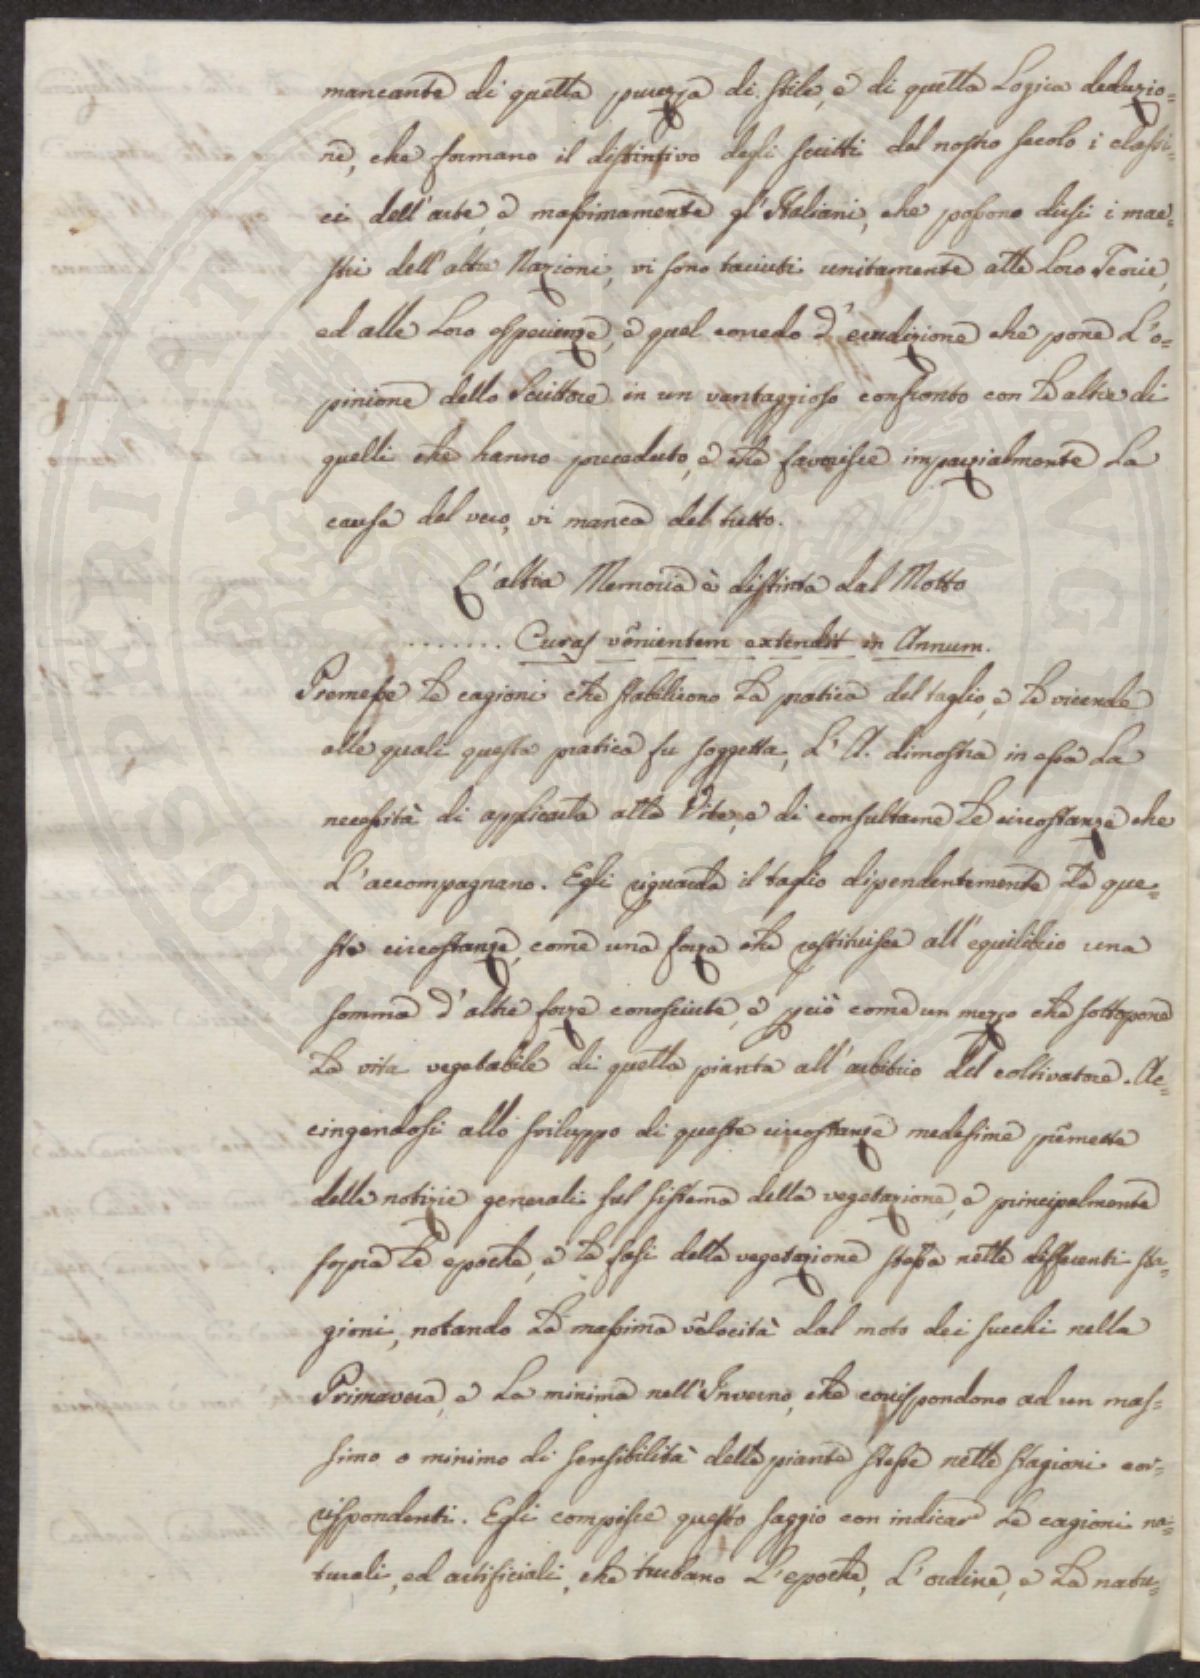 mancante di quella purezza di stile, e di quella Logica deduzio=
ne, che formano il distintivo degli scritti del nostro secolo i classi=
ci dell'arte, e massimamente gl'Italiani, che possono dirsi i mae=
stri dell'altre Nazioni, vi sono taciuti unitamente alle Loro Teorie,
ed alle Loro esperienze, e quel corredo d'erudizione che pone L'o=
pinione dello Scrittore in un vantaggioso confronto con Le altre di
quelli che hanno preceduto, e che favorisce imparzialmente La
causa del vero, vi manca del tutto.
L'altra Memoria è distinta dal Motto
....... Curas venientem extendit in Annum.
Premesse Le cagioni che stabilirono La pratica del taglio, e Le vicende
alle quali questa pratica fu soggetta, L'A. dimostra in essa La
necessità di applicarla alla Vite, e di consultarne Le circostanze che
L'accompagnano. Egli riguarda il taglio dipendentemente da que=
ste circostanze, come una forza che restituisce all'equilibrio una
somma d'altre forze conosciute, e perciò come un mezzo che sottopone
La vita vegetabile di quella pianta all'arbitrio del coltivatore. Ac=
cingendosi allo sviluppo di queste circostanze medesime premette
delle notizie generali sul sistema della vegetazione, e principalmente
sopra Le epoche, e Le fasi della vegetazione stessa nelle differenti sta=
gioni, notando La massima velocità dal moto dei succhi nella
Primavera, e La minima nell'Inverno, che corrispondono ad un mas=
simo o minimo di sensibilità delle piante stesse nelle stagioni cor=
rispondenti. Egli compisce questo saggio con indicar Le cagioni na=
turali, ed artificiali, che turbano L'epoche, L'ordine, e La natu=
SOSPITATI AVG